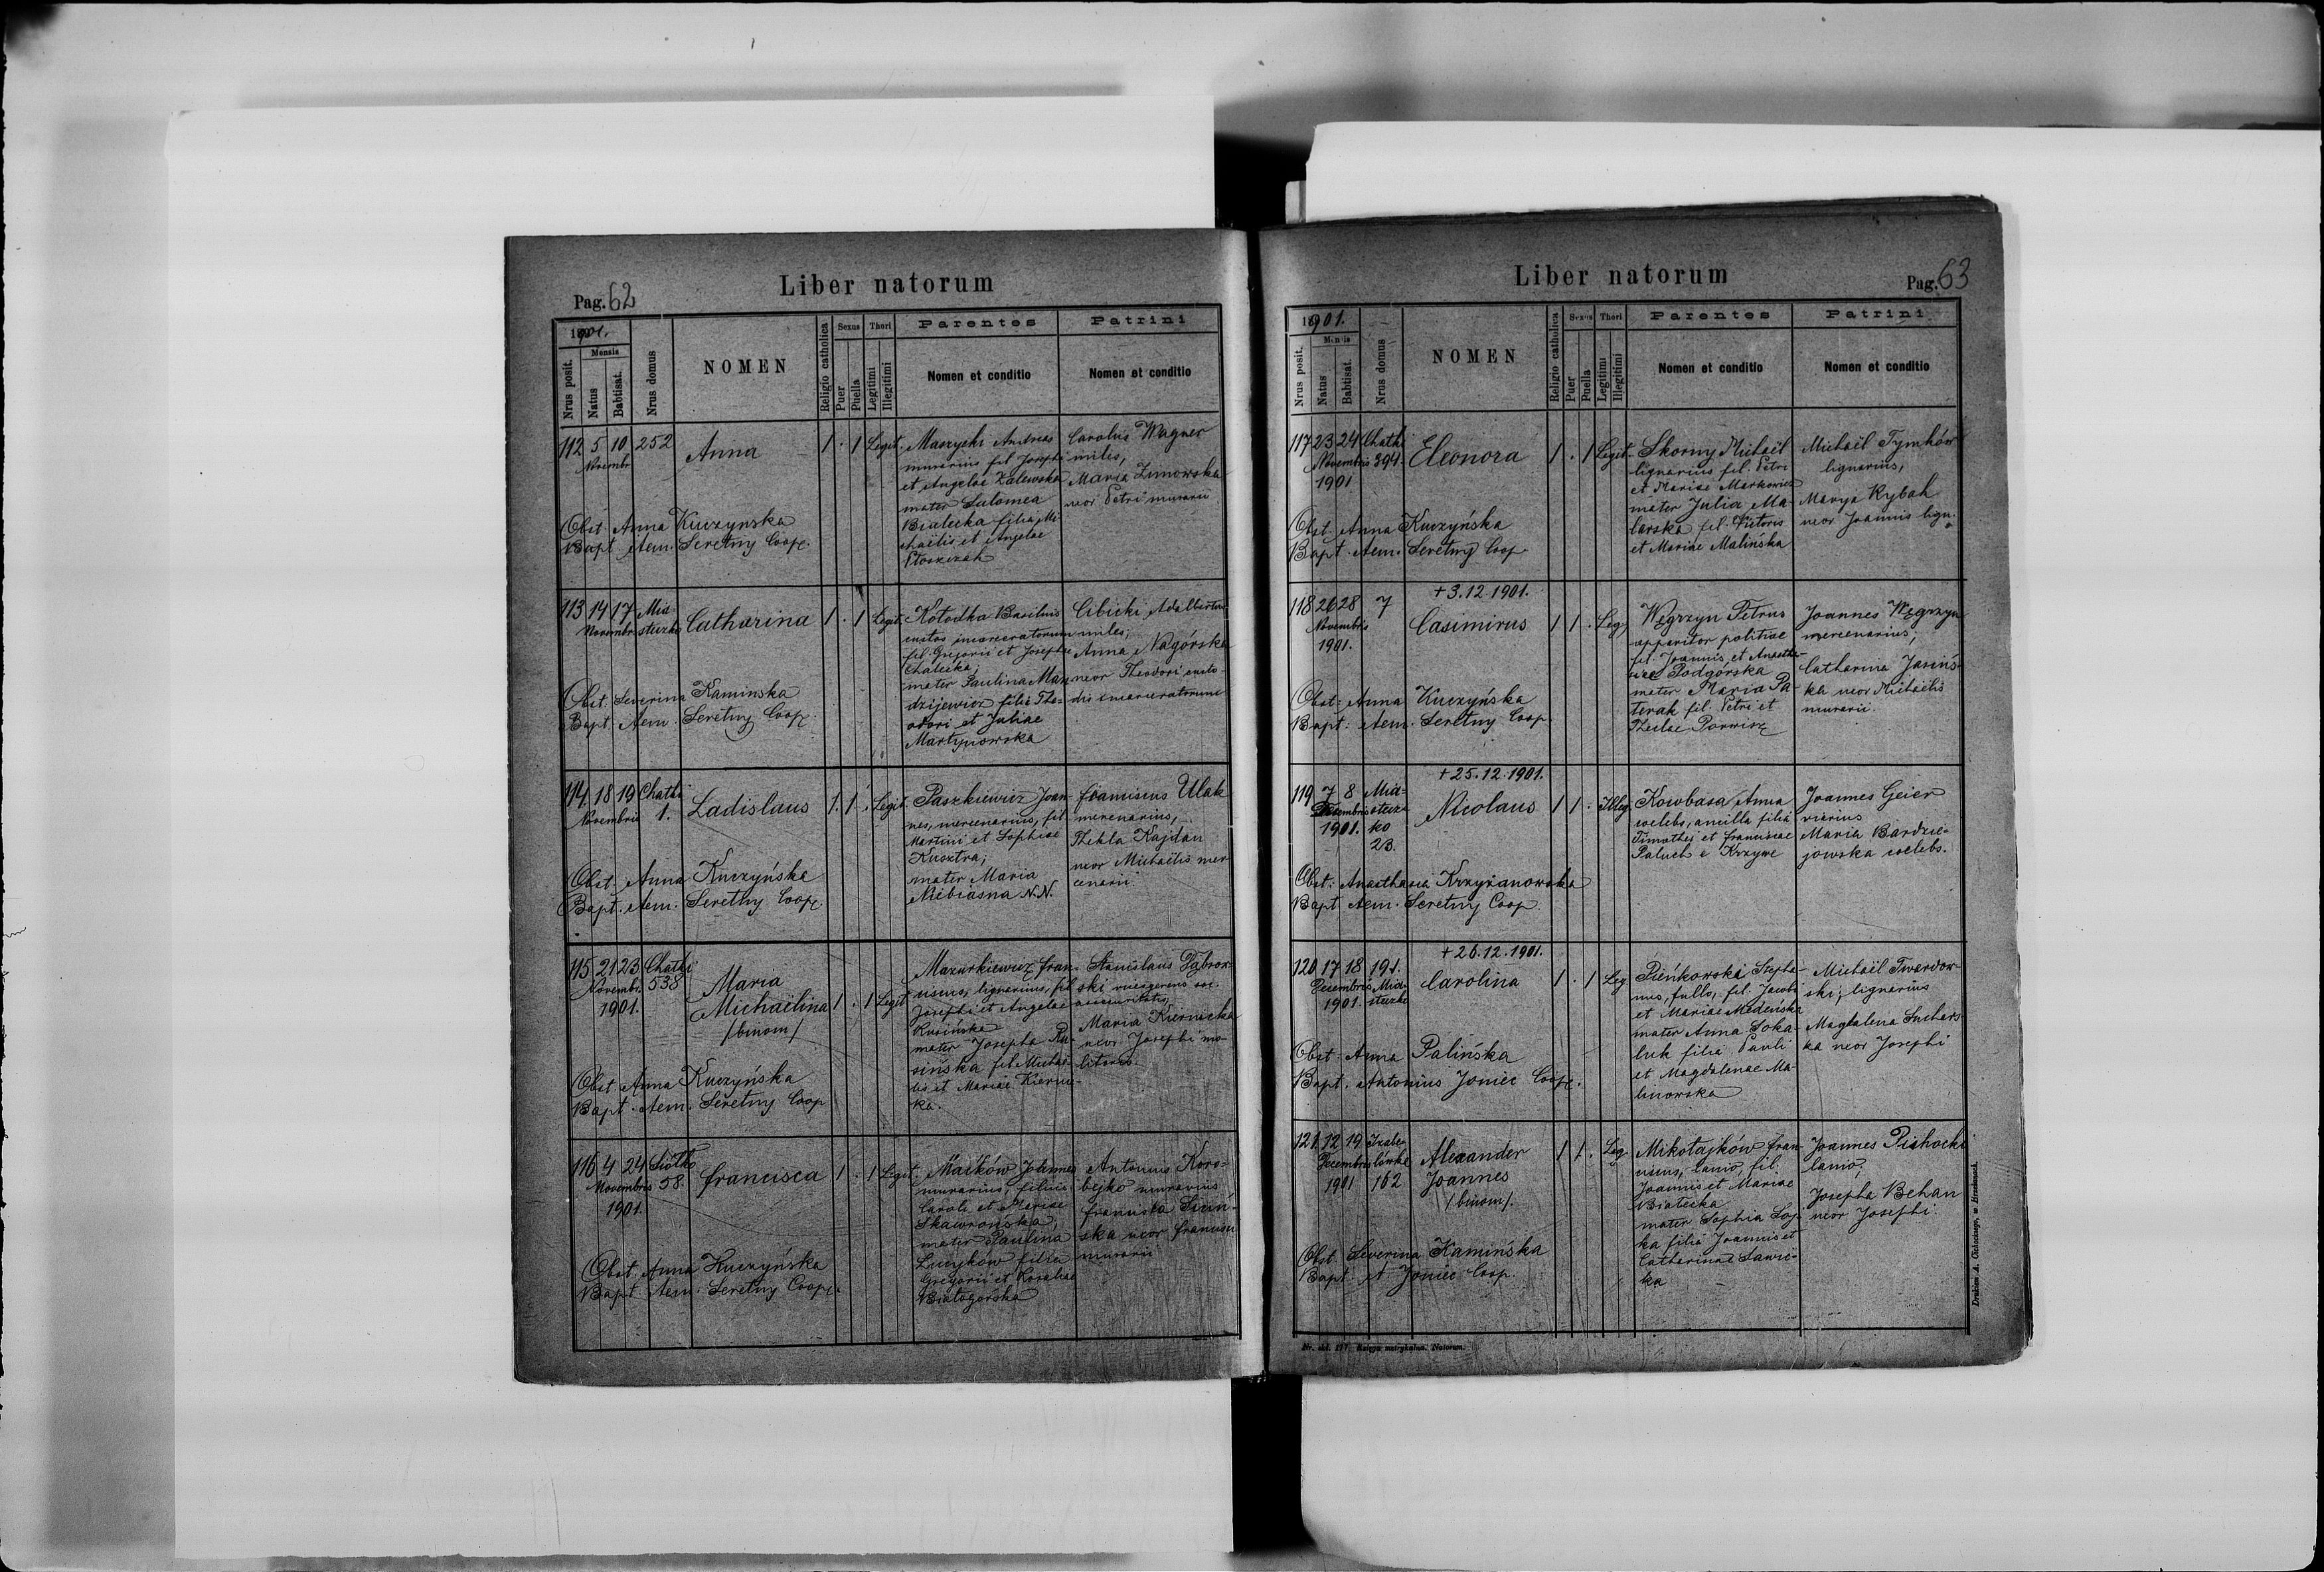 Liber natorum
Pag. 62
1901.
Nrus posit.
Mensis
Natus
Babtisat.
Nrus domus
NOMEN
Religio catholica
Sexus
Puer
Puella
Thori
Legitimi
Illegitimi
Parentes
Nomen et conditio
Patrini
Nomen et conditio
112 5 10 252 Anna 1 . 1 Legit.
Novembr.
Maszycki Andreas
murarius fil Josephi
et Angelae Zalewska
mater Salomea
Białecka filia Mi-
chaëlis et Angelae
Carolus Wagner
miles,
Maria Zimowska
uxor Petri murarii
Obst. Anna Kuczynska
Bapt. Aem. Seretny Coop.
113 14 17 Mia- Catharina 1 . 1 Legit.
Novembr. steczko
Kołodka Basilius
custos incarceratorum
fil. Gregorii et Josephae
Chalecka;
mater Paulina Man-
dzijewicz filia The-
odori et Juliae
Martynowska
Cibicki Adalbertus
miles;
Anna Nagórska
uxor Theodori custo-
dis incarceratorum
Obst. Severina Kaminska
Bapt. Aem. Seretny Coop.
114 18 19 Chatki Ladislaus 1. 1 . Legit.
Novembris 1.
Paszkiewicz Joan-
nes, mercenarius, fil
Martini et Sophiae
Kusztra;
mater Maria
Niebiasna N.N.
Franciscus Ulak
mercenarius,
Thekla Kajdan
uxor Michaëlis mer-
cenarii.
Obst. Anna Kuczyńska
Bapt. Aem. Seretny Coop.
115 21 23 Chatki Maria
Novembr. 538
1901. Michaëlina 1 . 1 Legit.
/binom/
Mazurkiewicz Fran-
ciscus, lignarius, fil
Josephi et Angelae
Rusińska
mater Josepha Ru-
sińska fil Michaë-
lis et Mariae Kiernic-
ka.
Stanislaus Dąbrow-
ski vicegerens soc.
Maria Kiernicka
uxor Josephi mo-
litoris.
Obst. Anna Kuczyńska
Bapt. Aem. Seretny Coop
116 4 24 Siółko Francisca 1 . 1 Legit.
Novembris 58.
1901.
Maików Johannes
murarius, filius
Caroli et Mariae
Skawrońska;
mater Paulina
Lucyków filia
Gregorii et Rosaliae
Białogorska
Antonius Koro-
bejko murarius
ska uxor Francisci
murarii
Obst. Anna Kuczyńska
Bapt. Aem. Seretny Coop.
Liber natorum
Pag. 63
1901.
Nrus posit.
Mensis
Natus
Babtisat.
Nrus domus
NOMEN
Religio catholica
Sexus
Puer
Puella
Thori
Legitimi
Illegitimi
Parentes
Nomen et conditio
Patrini
Nomen et conditio
117 23 24 Chatki Eleonora 1 . 1 Legit.
Novembris 394.
1901
Skorny Michaël
lignarius fil. Petri
et Mariae Markowicz
mater Julia Ma-
larska fil. Victoris
et Mariae Malińska
Michaël Tymków
lignarius,
Marya Rybak
uxor Joannis lign.
Obst. Anna Kuczyńska
Bapt. Aem. Seretny Coop.
+ 3.12 1901.
118 26 28 7 Casimirus 1 1 . Leg.
Novembris
1901.
Węgrzyn Petrus
apparitor politiae
fil. Joannis et Anasta-
siae Podgórska
mater Maria Pa-
terak fil. Petri et
Theclae Porwisz
Joannes Węgrzyn
mercenarius;
Catharina Jasińs-
ka uxor Michaëlis
murarii.
Obst. Anna Kuczyńska
Bapt. Aem. Seretny Coop.
+ 25.12.1901.
119 7 8 Mia- Nicolaus 1 1 . Illeg.
Decembris stecz-
1901. ko
23.
Kowbasa Anna
coelebs, ancilla filia
Timothei et Franciscae
Paluch e Krzywe
Joannes Geier
viarius
Maria Bardzie-
jowska coelebs.
Obst: Anasthasia Krzyżanowska
Bapt Aem. Seretny Coop.
+ 26.12.1901.
120 17 18 191. Carolina 1 . 1 Leg.
Decembris Mia-
1901. steczko
Pieńkowski Stepha-
nus, fullo, fil. Jacobi
et Mariae Medeńska
mater Anna Soka-
luk filia Pauli
et Magdalenae Ma-
linowska
Michaël Twardow-
ski, lignarius
Magdalena Suchars-
ka uxor Josephi
Obst. Anna Palińska
Bapt. Antonius Joniec Coop.
121 12 19 Izabe- Alexander 1 1 . Leg.
Decembris lówka
1901 162 Joannes
/binom/.
Mikołajków Fran-
ciscus, lanio, fil.
Joannis et Mariae
Białecka
mater Sophia Soj-
ka filia Joannis et
Catharinae Sawic-
ka
Joannes Pichocki
lanio,
Josepha Behan
uxor Josephi.
Obst. Severina Kamińska
Bapt. A. Joniec Coop.